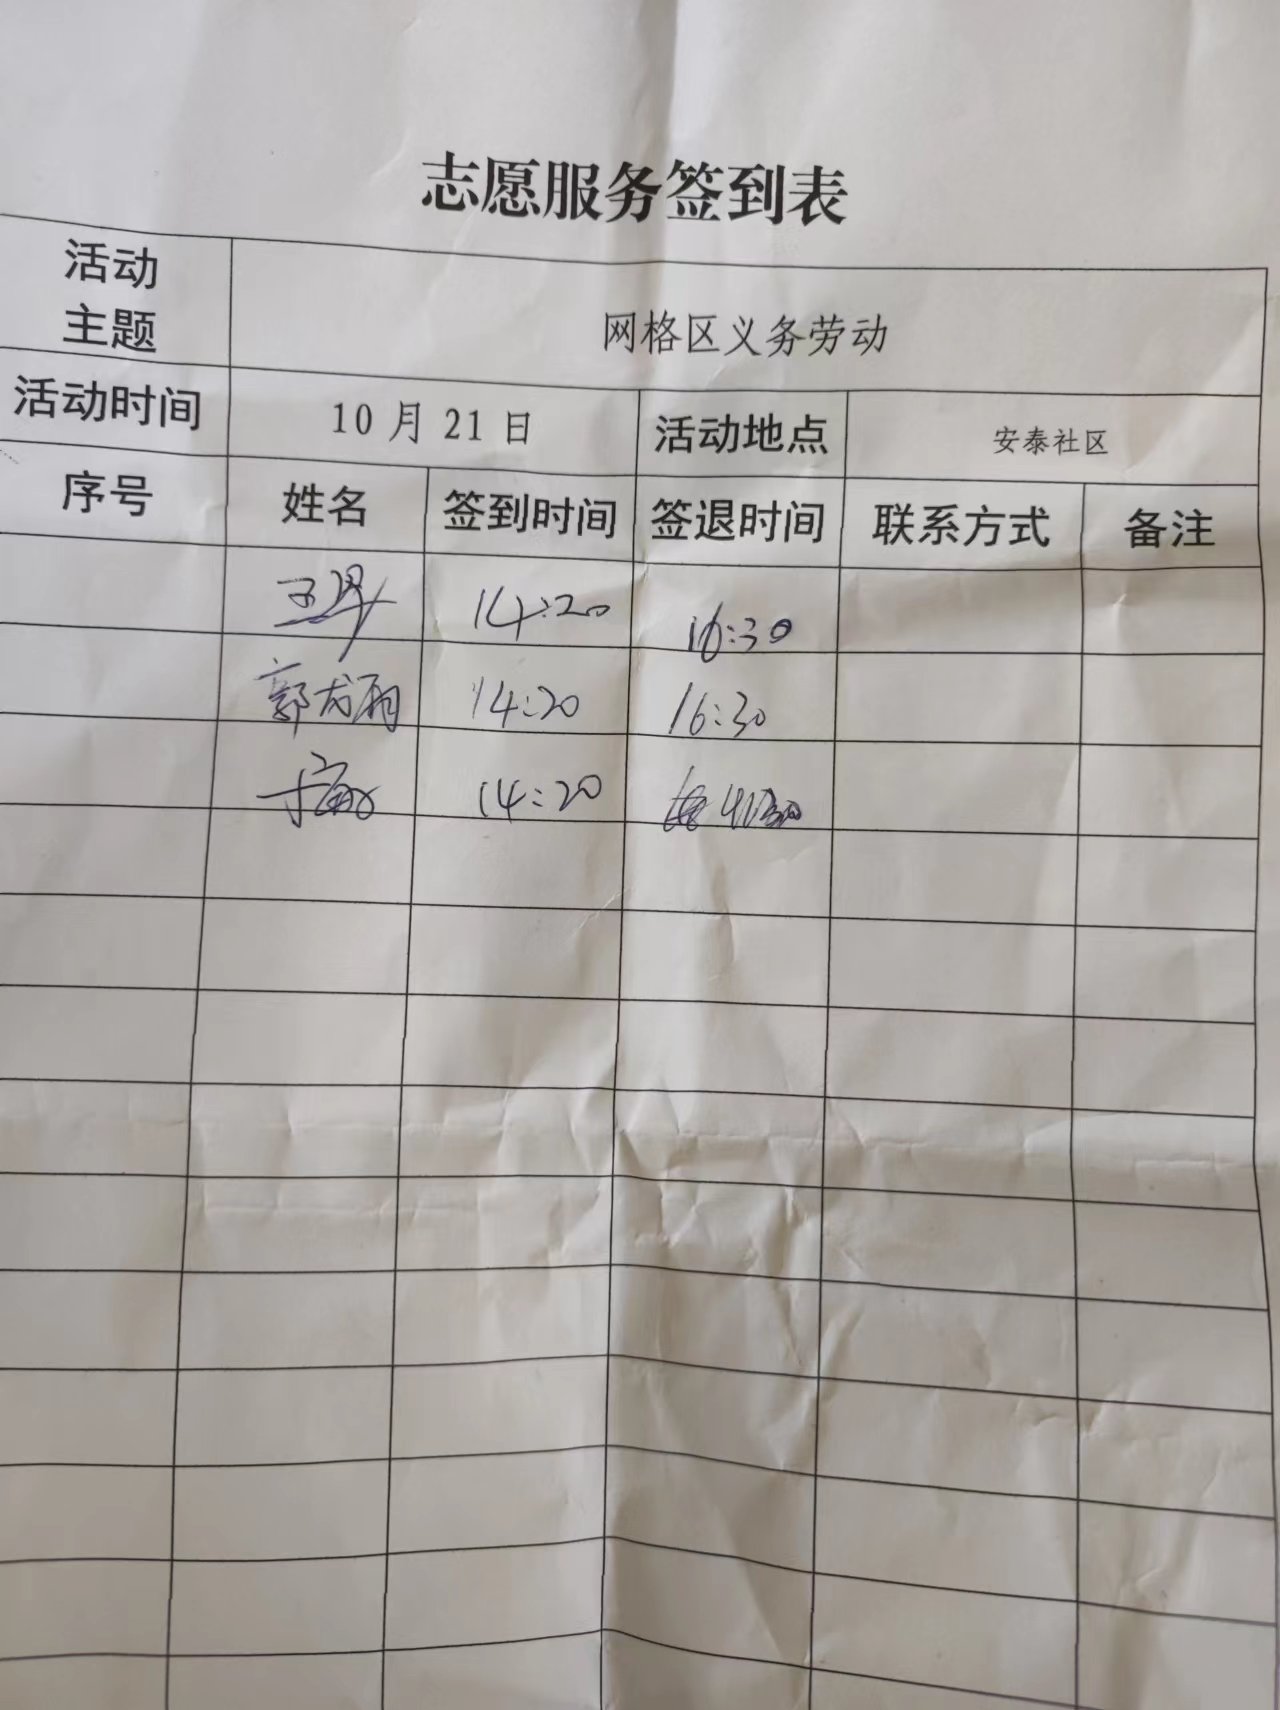 志愿服务签到表
活动主题 网格区义务劳动
活动时间 10月21日 活动地点 安泰社区
序号 姓名 签到时间 签退时间 联系方式 备注
14:20 16:30
郭龙雨 14:20 16:30
14:20